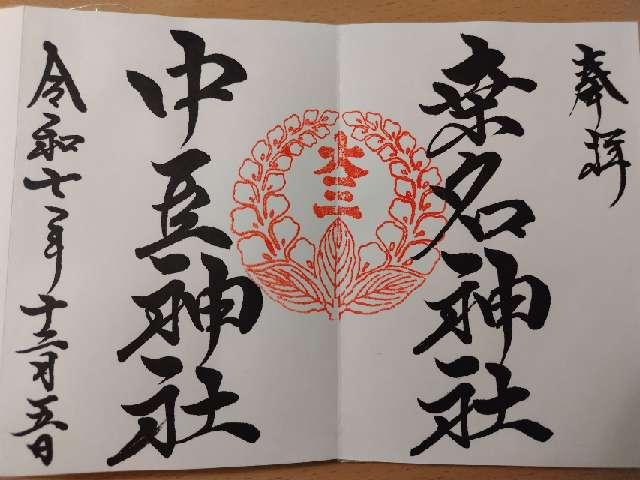 奉拝
桒名神社
中臣神社
令和七年十二月五日